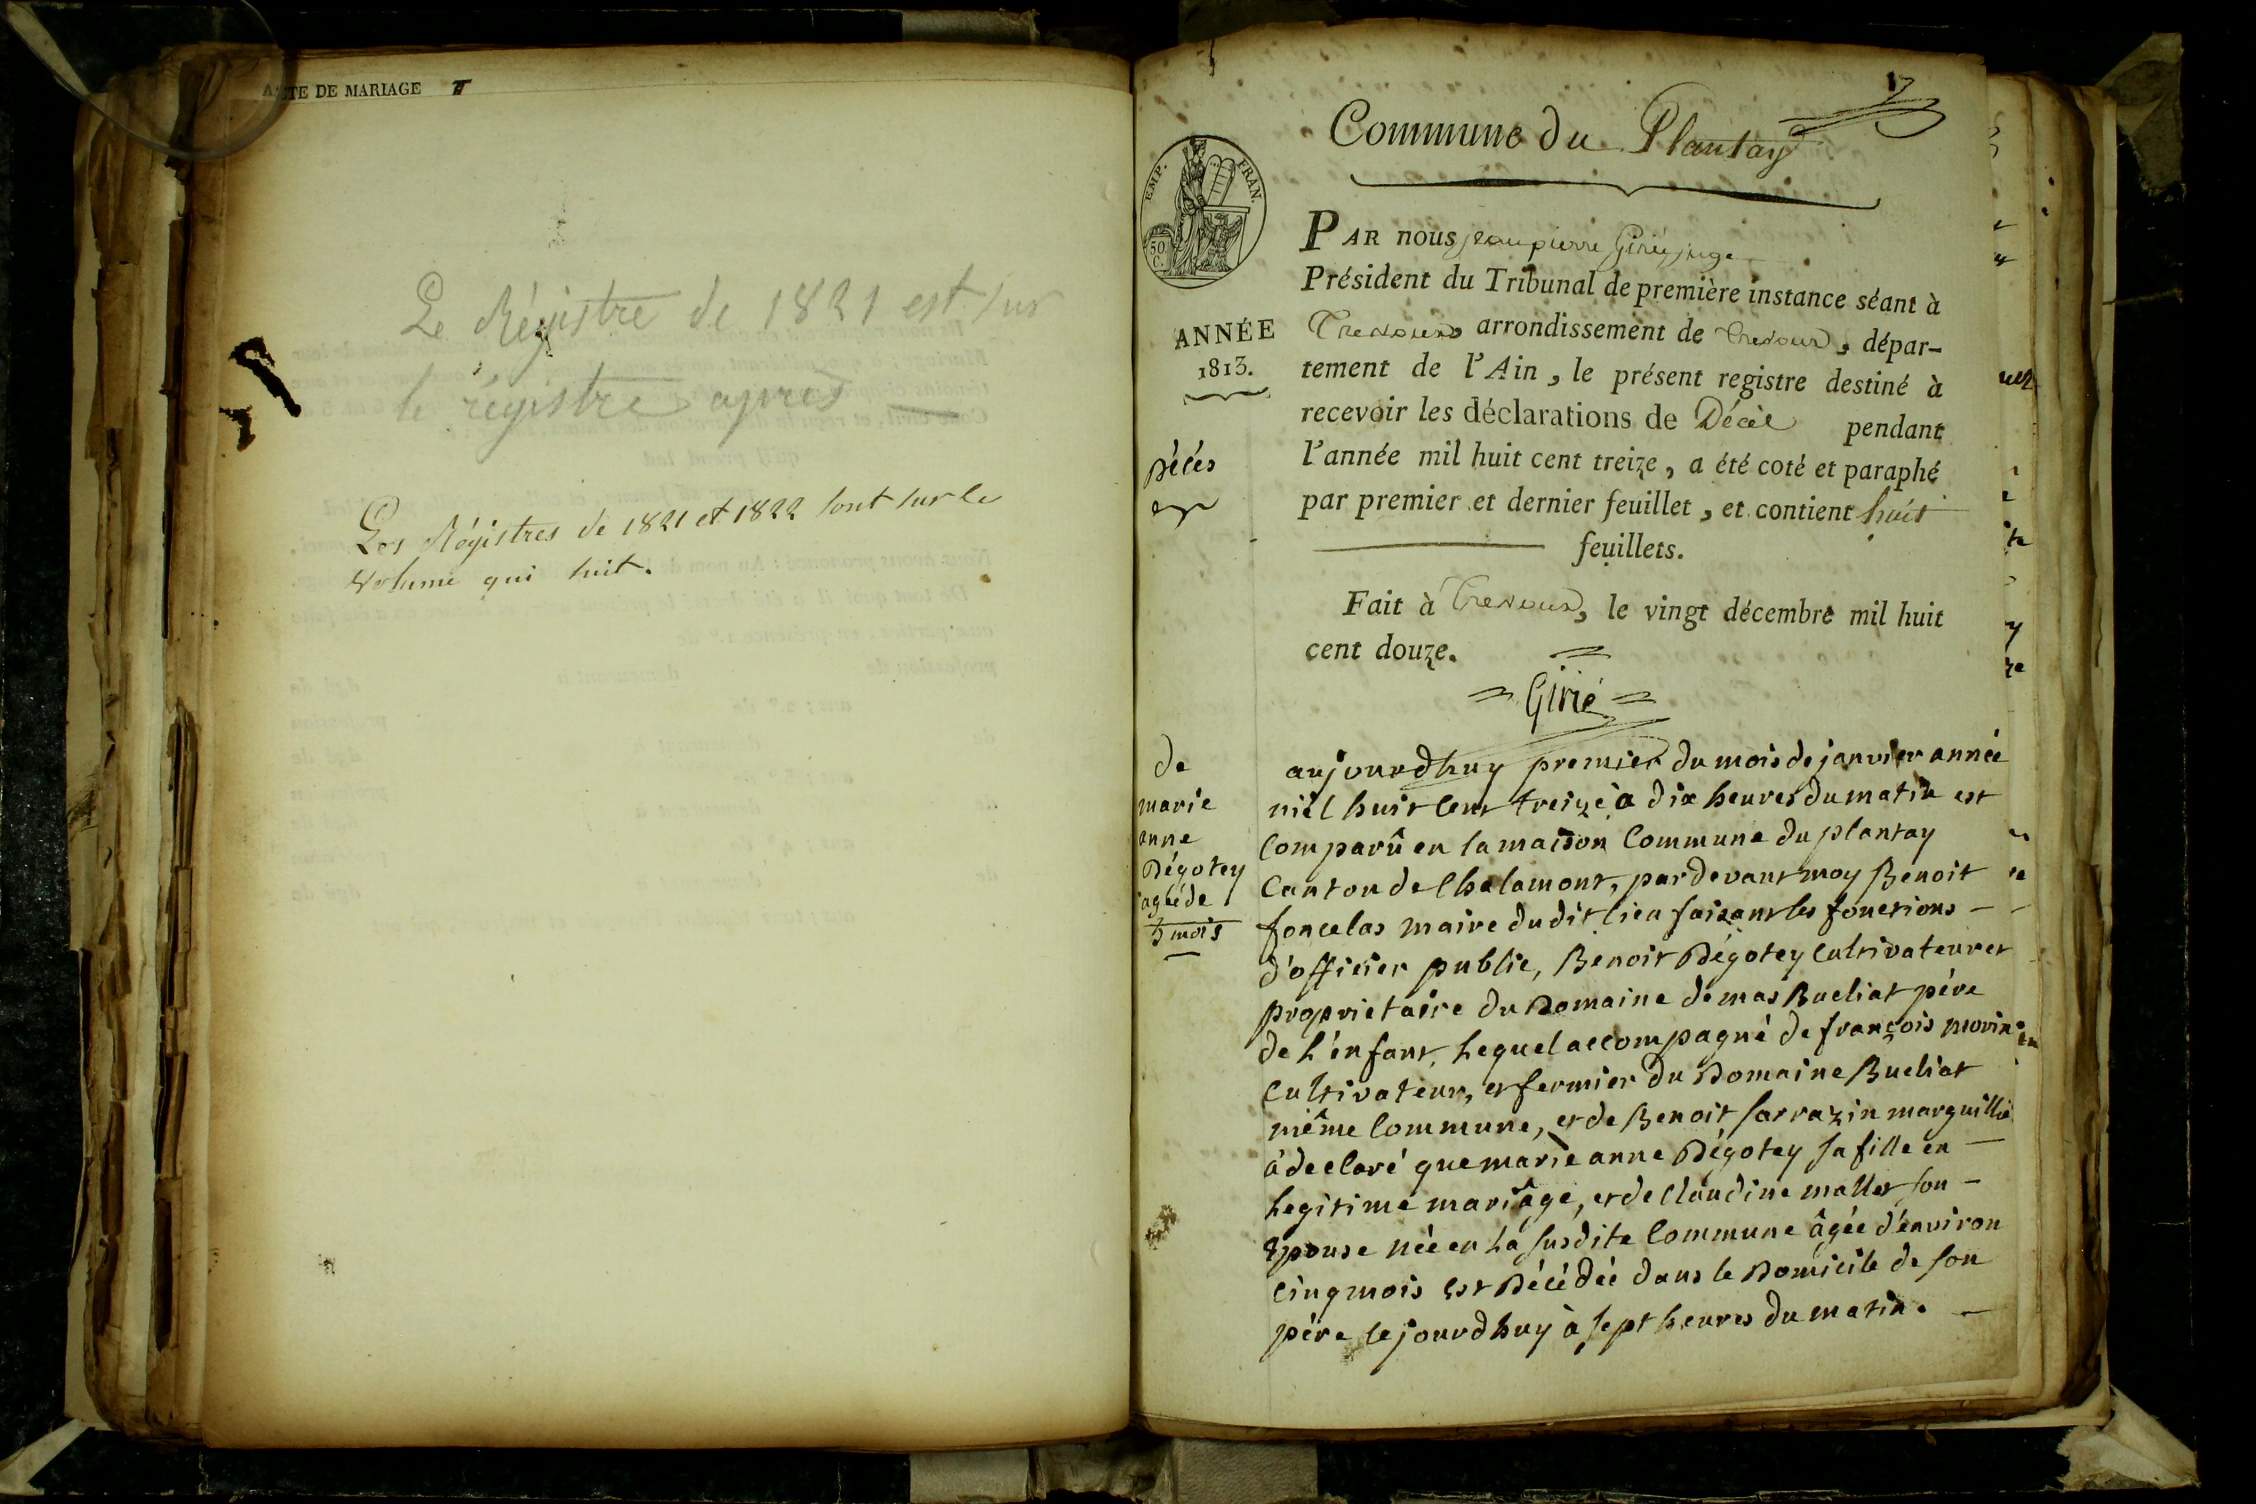 ACTE DE MARIAGE
Le Régistre de 1821 est sur
le régistre après
Les Régistres de 1821 et 1822 sont sur le
volume qui suit.
Commune du Plantay
EMP. FRAN.
50 C.
PAR nous jean pierre Girié, juge
Président du Tribunal de première instance séant à
Trevoux arrondissement de trevoux, dépar-
tement de l'Ain, le présent registre destiné à
recevoir les déclarations de Décès pendant
l'année mil huit cent treize, a été coté et paraphé
par premier et dernier feuillet, et contient huit
feuillets.
Fait à trevoux, le vingt décembre mil huit
cent douze.
Girié
ANNÉE
1813.
Décés
de
marie
anne
Dégotey
agée de
5 mois
aujourdhuy premier du mois de janvier année
mil huit cent treize à dix heures du matin est
Comparû en la maison Commune du plantay
Canton de Chalamont, pardevant moy Benoit
foncelas maire dudit lieu faisant les fonctions
d'officier public, Benoit Dégotey Cultivateur et
propriétaire du Domaine de mas Bueliat pére
de l'énfant, Lequel accompagné de françois morin
Cultivateur, et fermier du Domaine Bueliat
même Commune, et de Benoit sarrazin marguillié
à declaré que marie anne Dégotey sa fille en
Legitime mariâge, et de Claudine mallet son
Epouse née en La susdite Commune âgée d'environ
cinq mois est Décédée dans le Domicile de son
pére cejourdhuy à sept heures du matin.